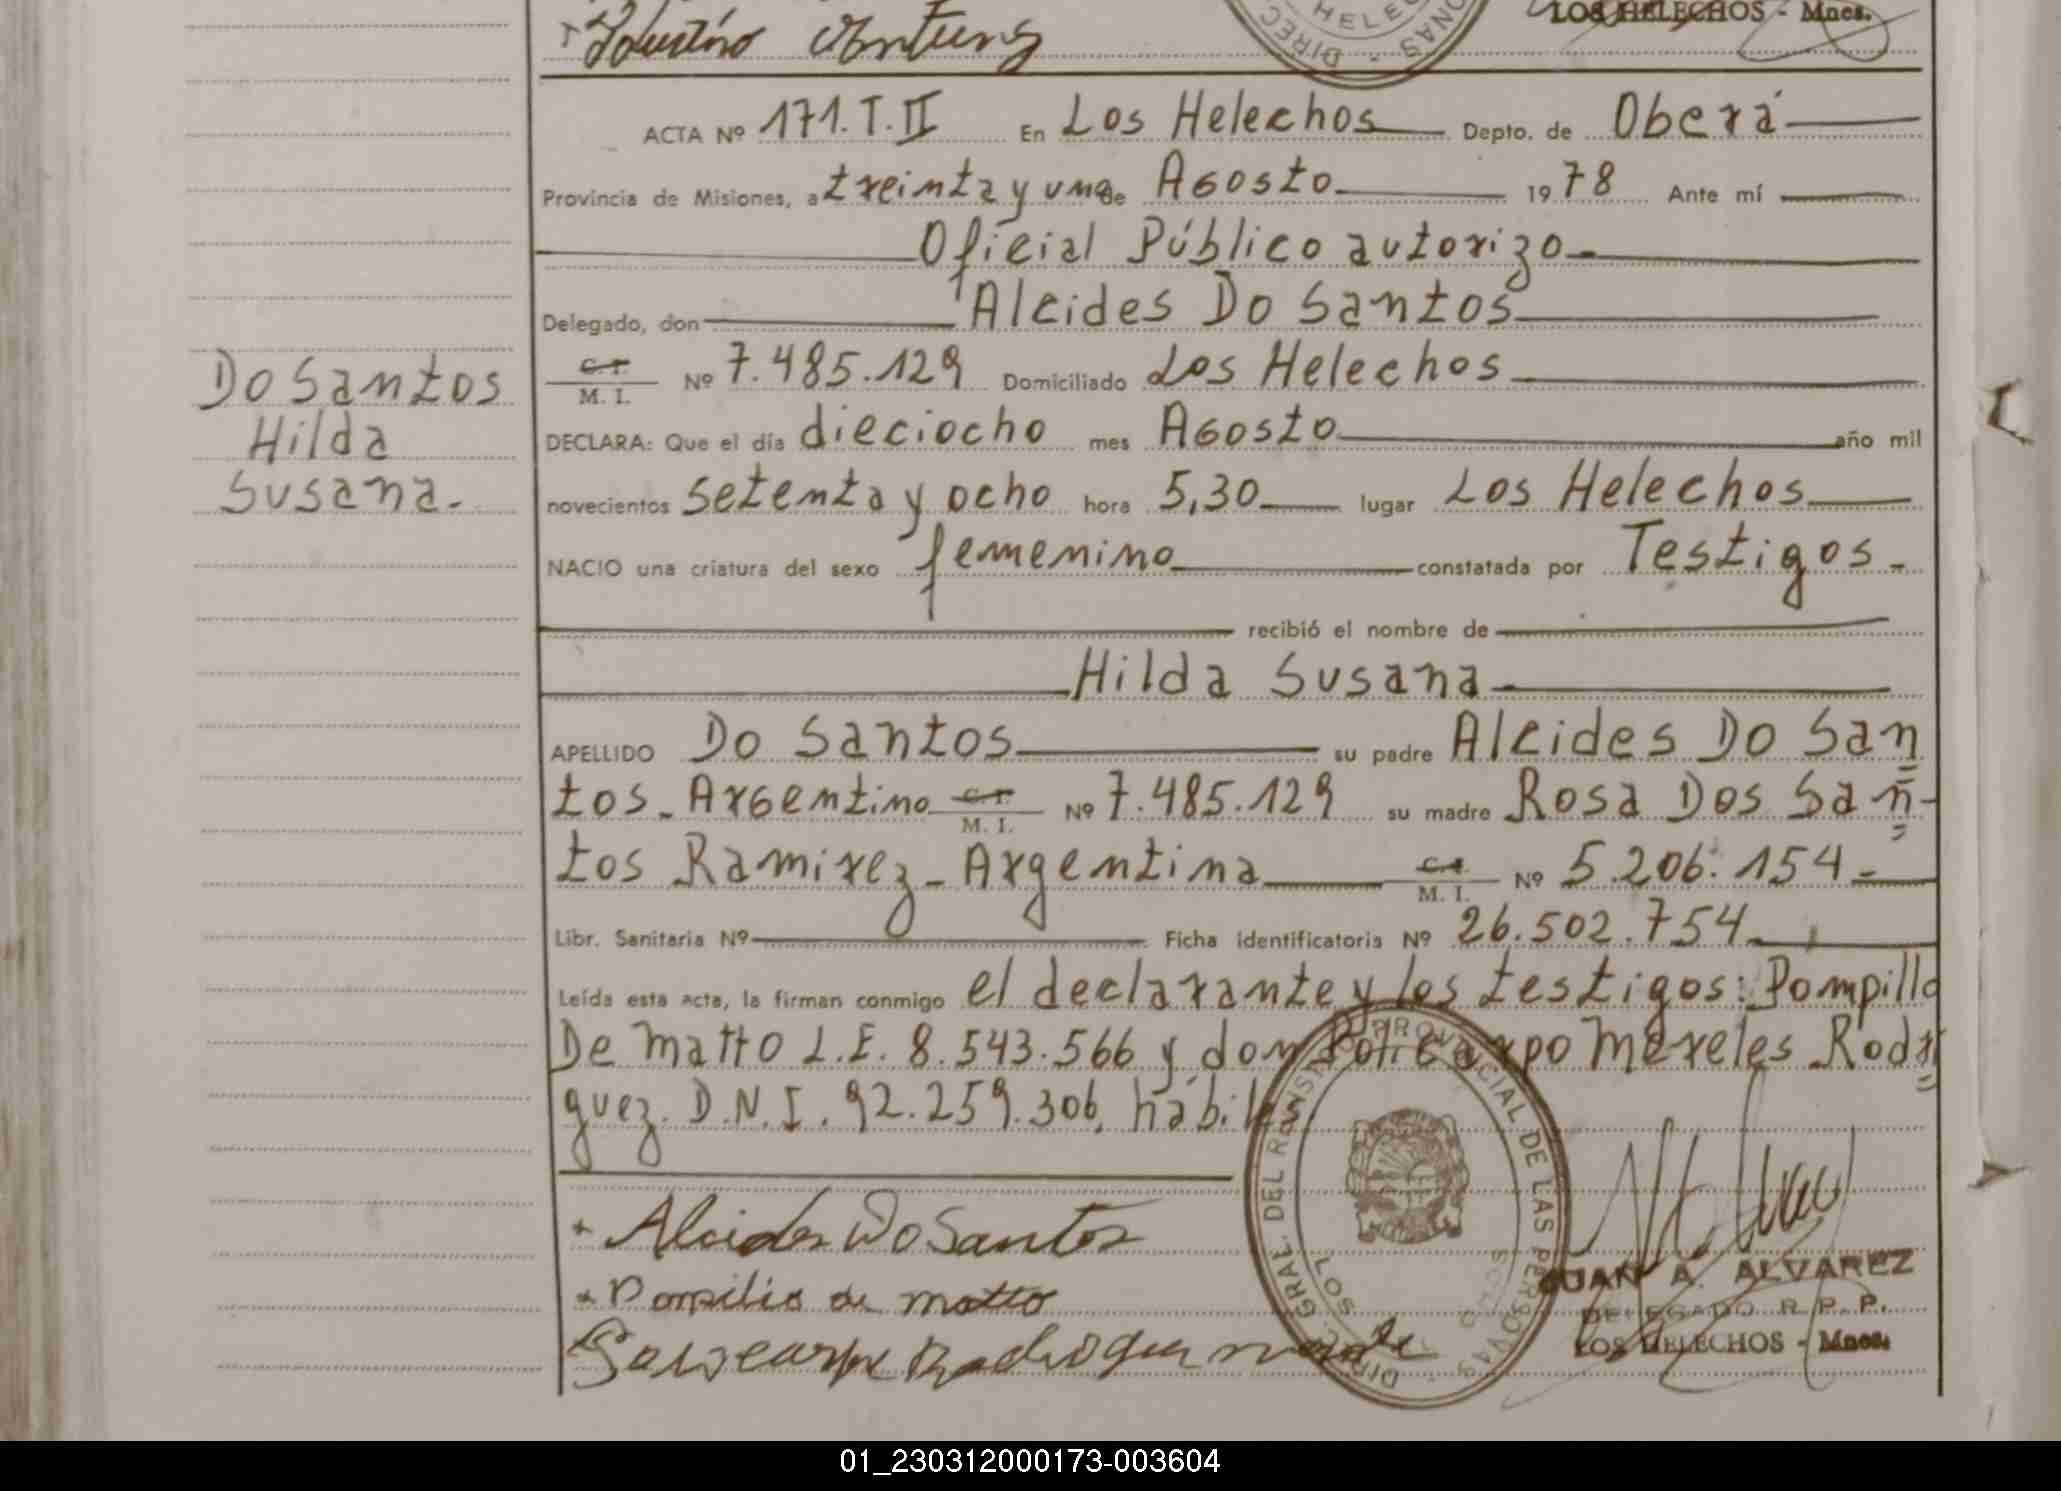 HELEC
DIREC
ONAS
LOS HELECHOS - Mnes.
ACTA Nº 171.T.II En Los Helechos Depto. de Oberá
Provincia de Misiones, a treinta y uno de Agosto 1978 Ante mí
Oficial Público autorizo
Delegado, don Alcides Do Santos
C.I.
M. I. Nº 7.485.129 Domiciliado Los Helechos
Do Santos
Hilda
Susana.
DECLARA: Que el día dieciocho mes Agosto año mil
novecientos setenta y ocho hora 5,30 lugar Los Helechos
NACIO una criatura del sexo femenino constatada por Testigos
recibió el nombre de
Hilda Susana
APELLIDO Do Santos su padre Alcides Do San
tos Argentino C.I. M. I. Nº 7.485.129 su madre Rosa Dos San
tos Ramirez Argentina C.I. M. I. Nº 5.206.154
Libr. Sanitaria Nº Ficha identificatoria Nº 26.502.754
Leída esta acta, la firman conmigo el declarante y los testigos: Pompillo
De Matto L.E. 8.543.566 y don Policarpo Mereles Rodri
guez. D.N.I. 92.259.306, hábiles.
Alcides Do Santos
Pompilio de matto
DIREC. GRAL. DEL REGISTRO PROVINCIAL DE LAS PERSONAS
LOS HELECHOS
JUAN A. ALVAREZ
DELEGADO R. P. P.
LOS HELECHOS - Mnes.
01_230312000173-003604